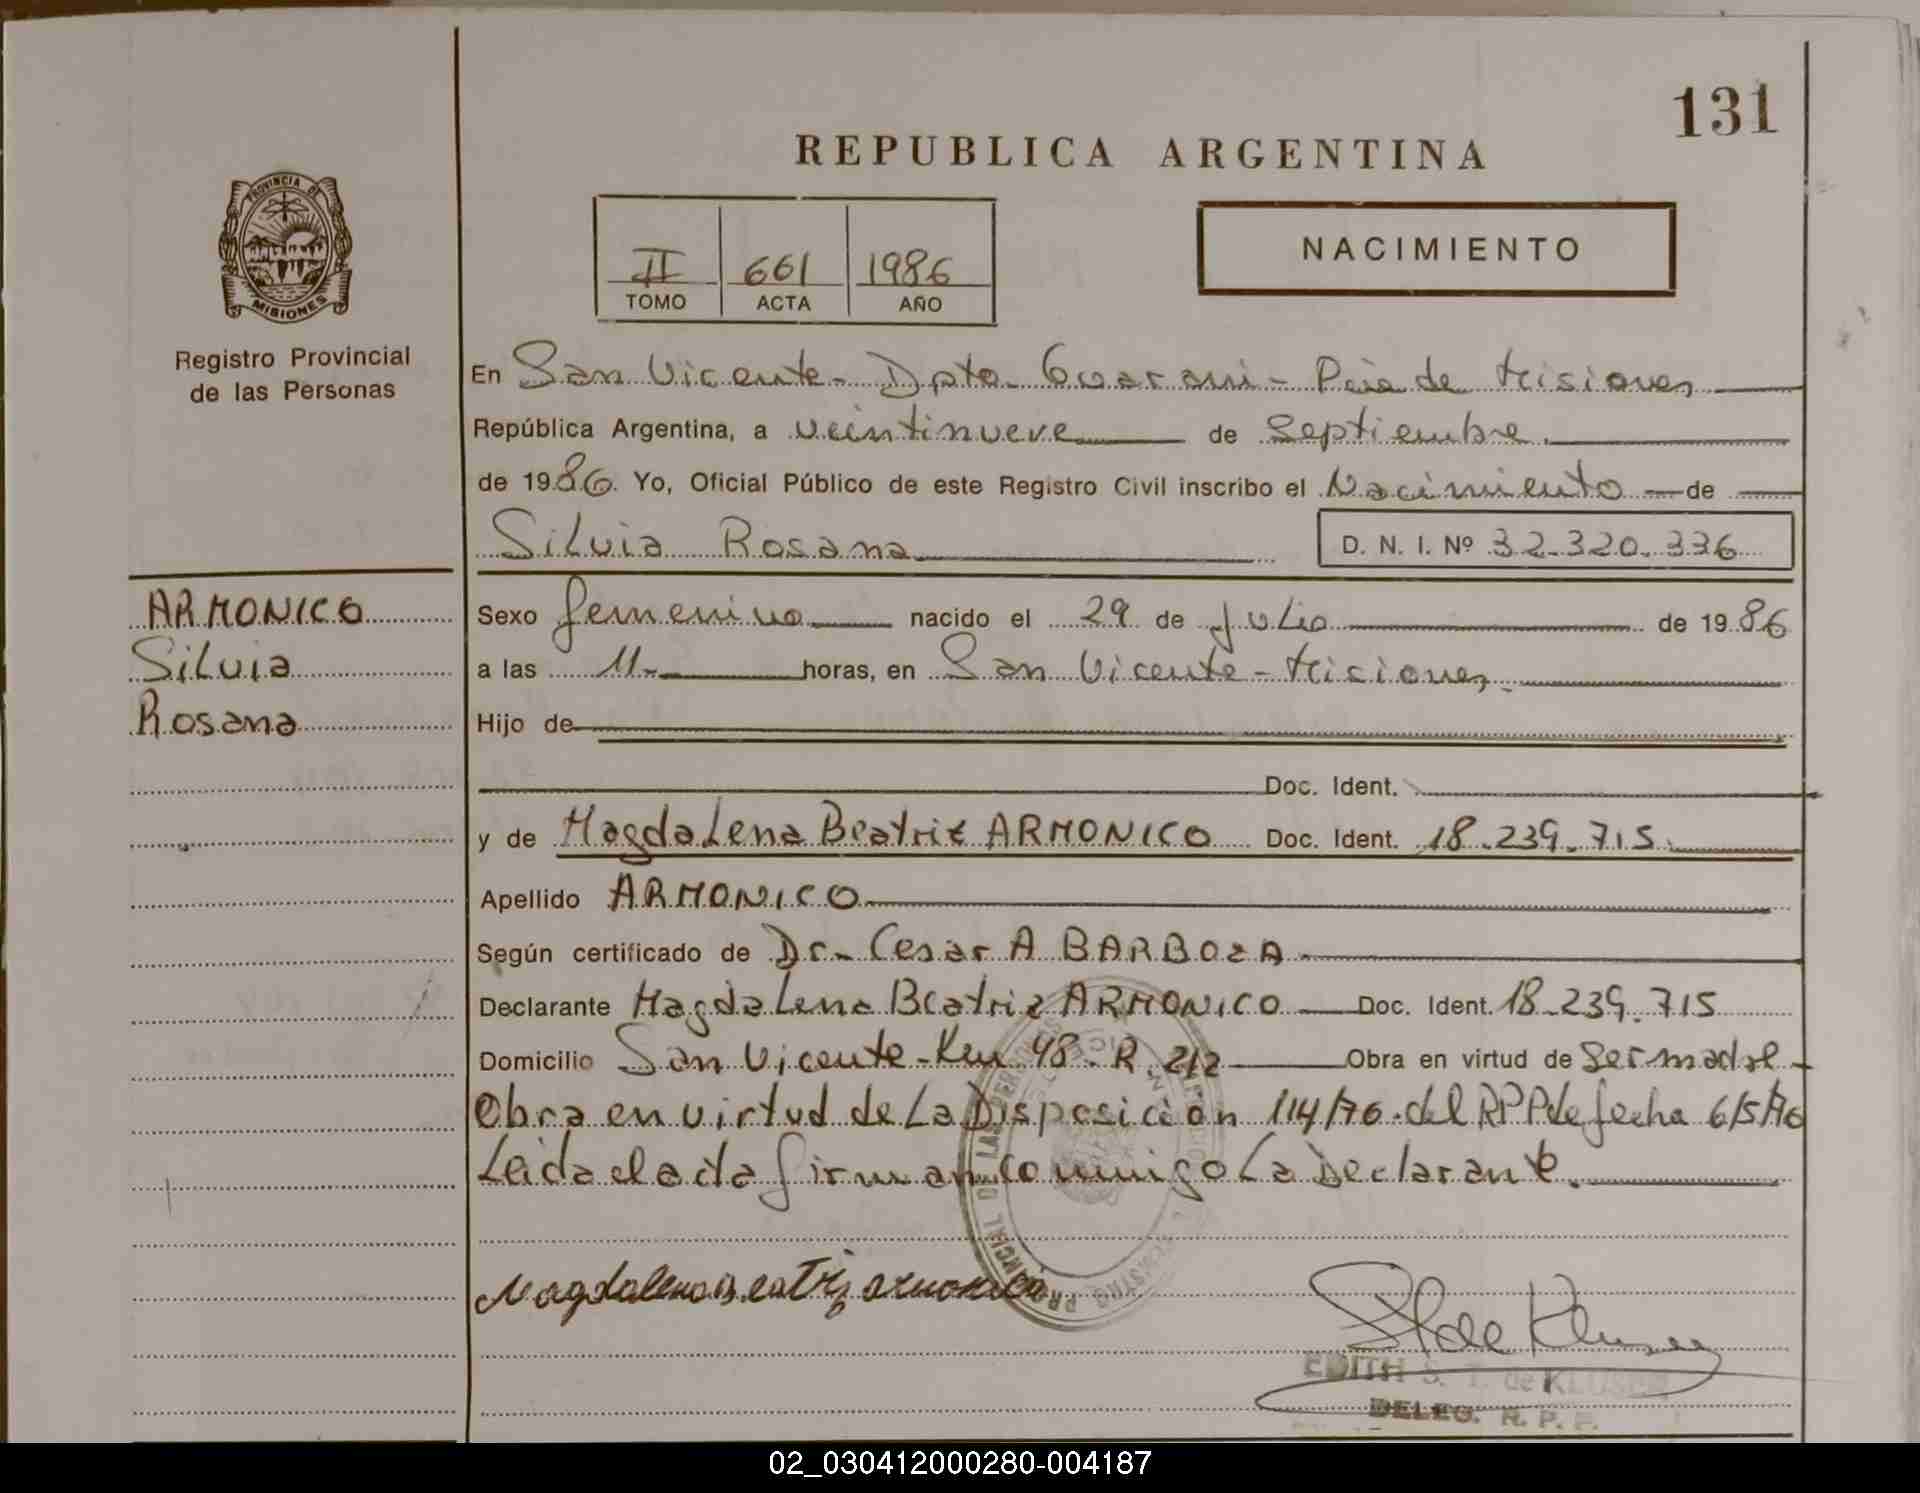 131
REPUBLICA ARGENTINA
PROVINCIA DE
MISIONES
II 661 1986
TOMO ACTA AÑO
NACIMIENTO
Registro Provincial
de las Personas
En San Vicente - Dpto. Guarani - Pcia de Misiones
República Argentina, a veintinueve de Septiembre
de 1986. Yo, Oficial Público de este Registro Civil inscribo el Nacimiento de
Silvia Rosana D. N. I. Nº 32.320.336
ARMONICO
Silvia
Rosana
Sexo femenino nacido el 29 de Julio de 1986
a las 11- horas, en San Vicente - Misiones
Hijo de
Doc. Ident.
y de Magdalena Beatriz ARMONICO Doc. Ident. 18.239.715
Apellido ARMONICO
Según certificado de Dr. Cesar A BARBOZA
Declarante Magdalena Beatriz ARMONICO Doc. Ident. 18.239.715
Domicilio San Vicente - Km 48 - R. 212 Obra en virtud de Ser madre -
Obra en virtud de La Disposición 114/76 del RPP de fecha 6/5/76
Leida el acta firman conmigo La Declarante.
Magdalena Beatriz armonico
EDITH S. T. de KLUSEN
DELEG. R. P. P.
02_030412000280-004187